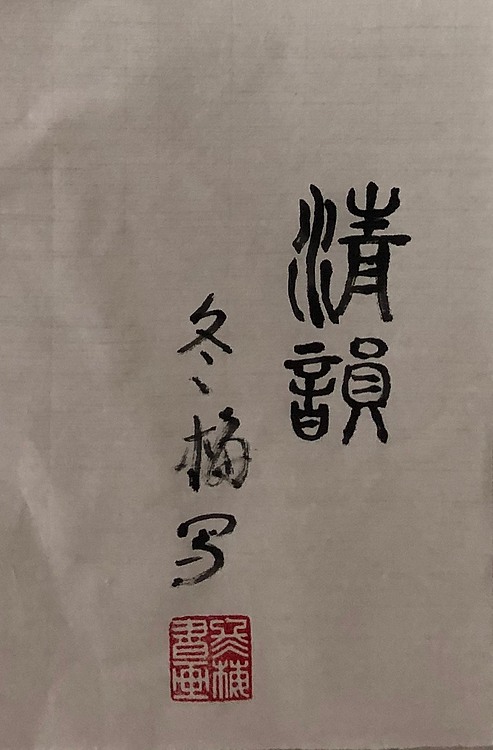 清韻
冬梅写
冬梅書画